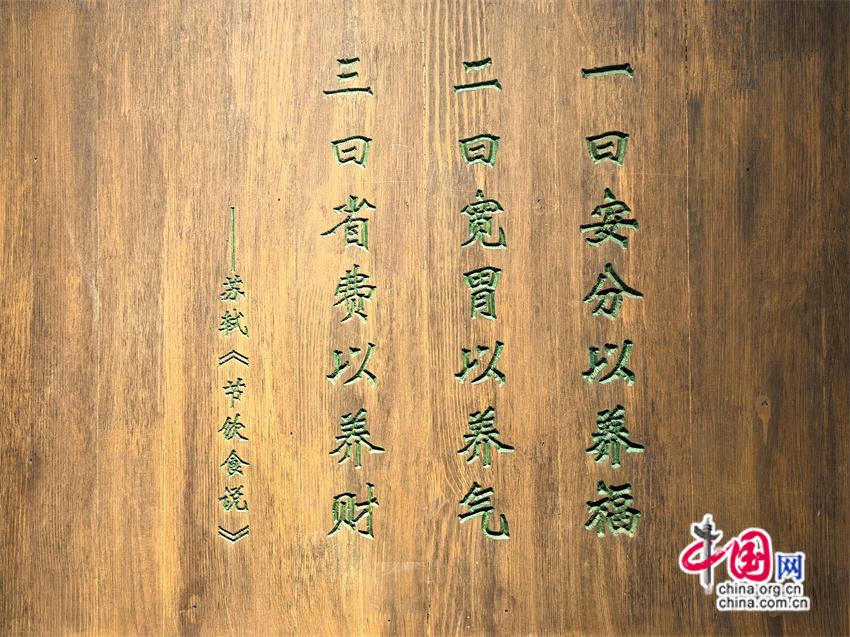 一曰安分以养福
二曰宽胃以养气
三曰省费以养财
——苏轼《节饮食说》
中国网
china.org.cn
china.com.cn